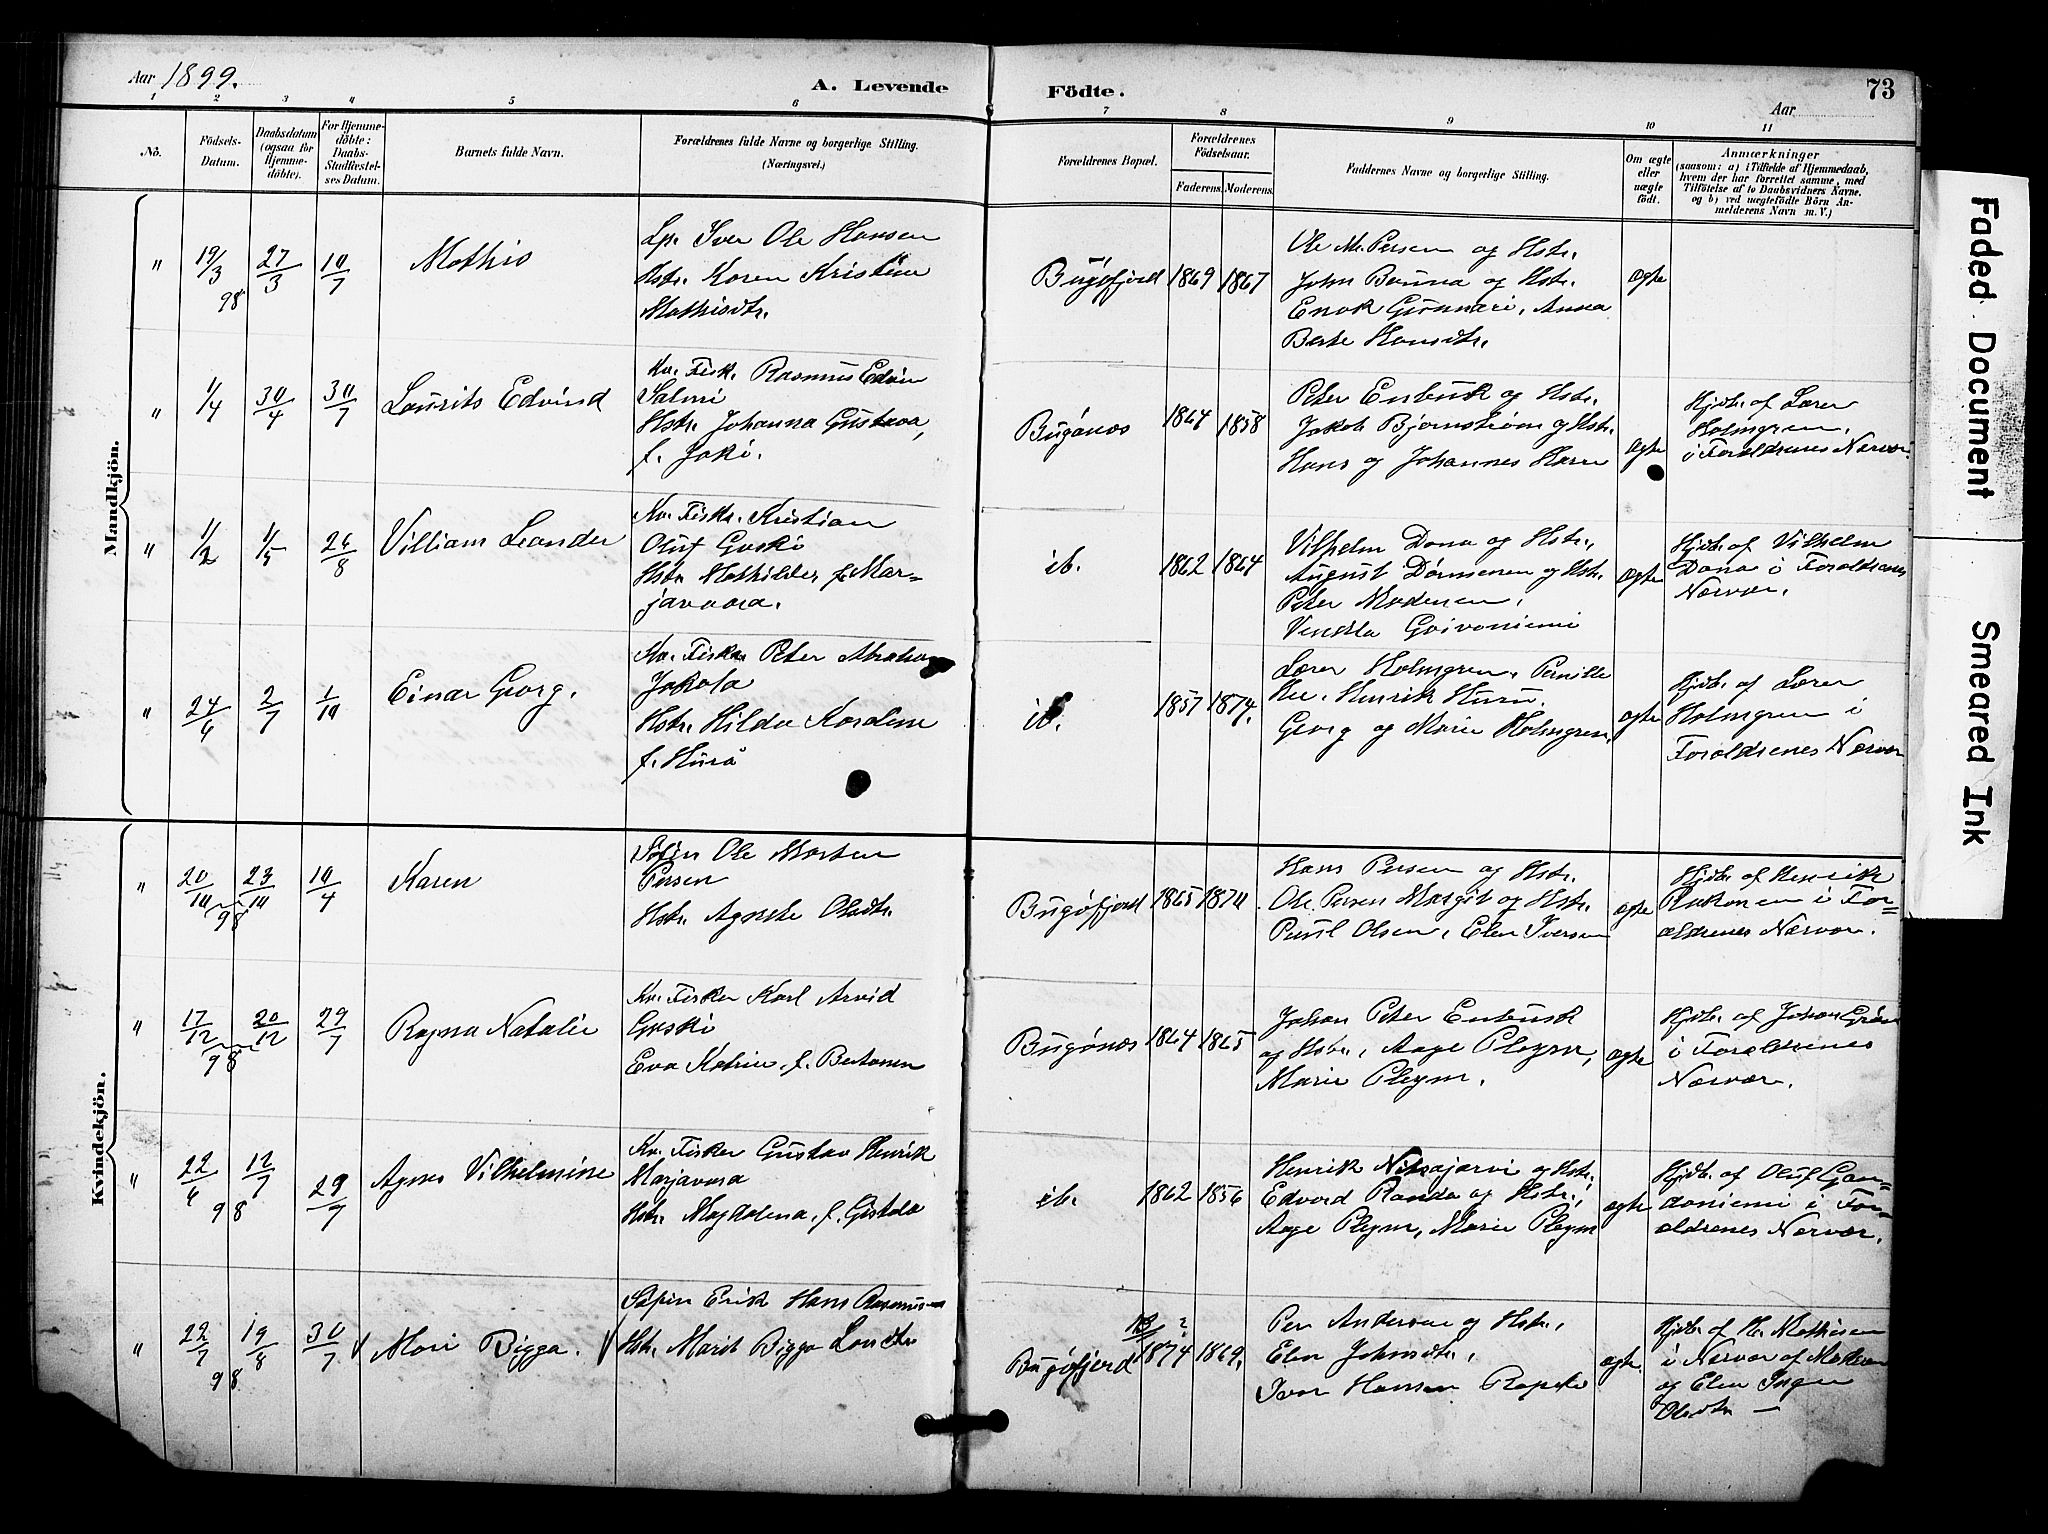 Aar 1899.
A. Levende Födte.
73
Aar
1 2 3 4 5 6 7 8 9 10 11
No.
Födsels-Datum.
Daabsdatum (ogsaa for Hjemme-döbte).
For Hjemme-döbte: Daabs-Stadfæstel-ses Datum.
Barnets fulde Navn.
Forældrenes fulde Navne og borgerlige Stilling.
(Næringsvei.)
Forældrenes Bopæl.
Forældrenes Födselsaar.
Faderens. Moderens.
Faddernes Navne og borgerlige Stilling.
Om ægte eller uægte födt.
Anmærkninger
(saasom: a) i Tilfælde af Hjemmedaab,
hvem der har forrettet samme, med
Tilföielse af to Daabsvidners Navne.
og b) ved uægtefödte Börn An-
melderens Navn m. V.)
Mandkjön.
" 19/3 98 27/3 10/7 Mathis
Lp. Iver Ole Hansen
Hstr. Karen Kristine
Mathisdtr.
Bugöfjord 1869 1867
Ole M. Persen og Hstr.
John Banna og Hstr.
Enok Ginnari, Anna
Berte Hansdtr.
ægte
" 1/4 30/4 30/7 Laurits Edvind
Kv. Fisk. Rasmus Edvin
Salmi
Hstr. Johanna Gustava,
f. Joki.
Bugönæs 1864 1858
Peter Enbusk og Hstr.
Jakob Bjornström og Hstr.
Hans og Johannes Karen
ægte
Hjdb. af Lærer
Holmgren,
i Forældrenes Nærvær.
" 1/2 1/5 26/8 Villiam Leander
Kv. Fisker Kristian
Oluf Gaski
Hstr. Mathilde, f. Mar-
javaara.
ib. 1862 1864
Vilhelm Dana og Hstr.,
August Dörmenen og Hstr.
Peter Madsen,
Vendla Goivaniemi
ægte
Hjdb. af Vilhelm
Dana i Forældrenes
Nærvær.
" 24/6 2/7 1/10 Einar Georg.
Kv. Fisker Peter Abraham
Jakola
Hstr. Hilda Karoline
f. Huru
ib. 1857 1874.
Lærer Holmgren, Pernille
Henrik Huru.
Georg og Marie Holmgren,
ægte
Hjdb. af Lærer
Holmgren i
Forældrenes Nærvær
Kvindekjön.
" 20/10 98 23/10 10/4 Karen
Söfin Ole Morten
Persen
Hstr. Agnete Olsdtr.
Bugöfjord 1865 1870
Hans Persen og Hstr.
Ole Persen Margit og Hstr.
Paul Olsen, Elen Iversen
ægte
Hjdb. af Henrik
Rakonen i For=
ældrenes Nærvær.
" 17/12 98 20/12 29/7 Ragna Natalie
Kv. Fisker Karl Arvid
Gaski
Eva Katrine, f. Bertanen
Bugönæs 1864 1865
Johan Peter Enbusk
og Hstr., Aage Pleym,
Marie Pleym.
ægte
Hjdb. af Johan Grön
i Forældrenes
Nærvær.
" 22/6 98 12/7 29/7 Agnes Vilhelmine
Kv. Fisker Gustav Henrik
Marjavara
Hstr. Magdalena, f. Gistala
ib. 1862 1856
Henrik Niskajarvi og Hstr.
Edvard Randa og Hstr.,
Aage Pleym, Marie Pleym
ægte
Hjdb. af Oluf
i For-
ældrenes Nærvær.
" 22/7 98 19/8 30/7 Mari Bigga.
Söfin Erik Hans Rasmussen
Hstr. Marit Bigga
Bugöfjord 1874 1869.
Per Andersen og Hstr.,
Elen Johnsdtr.,
Ivar Hansen
ægte
Hjdb. af H. Mathisen
i Nærvær af Moderen
og Elen Inger
Olsdtr. —
Faded Document
Smeared Ink